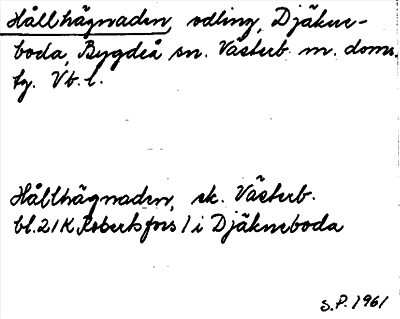 Hållhägnaden, odling, Djäkne-
boda, Bygdeå sn. Västerb. m. doms.
tg. Vb. l.
Hållhägnaden, ek. Västerb.
bl. 21K Robertsfors / i Djäkneboda
S.P. 1961